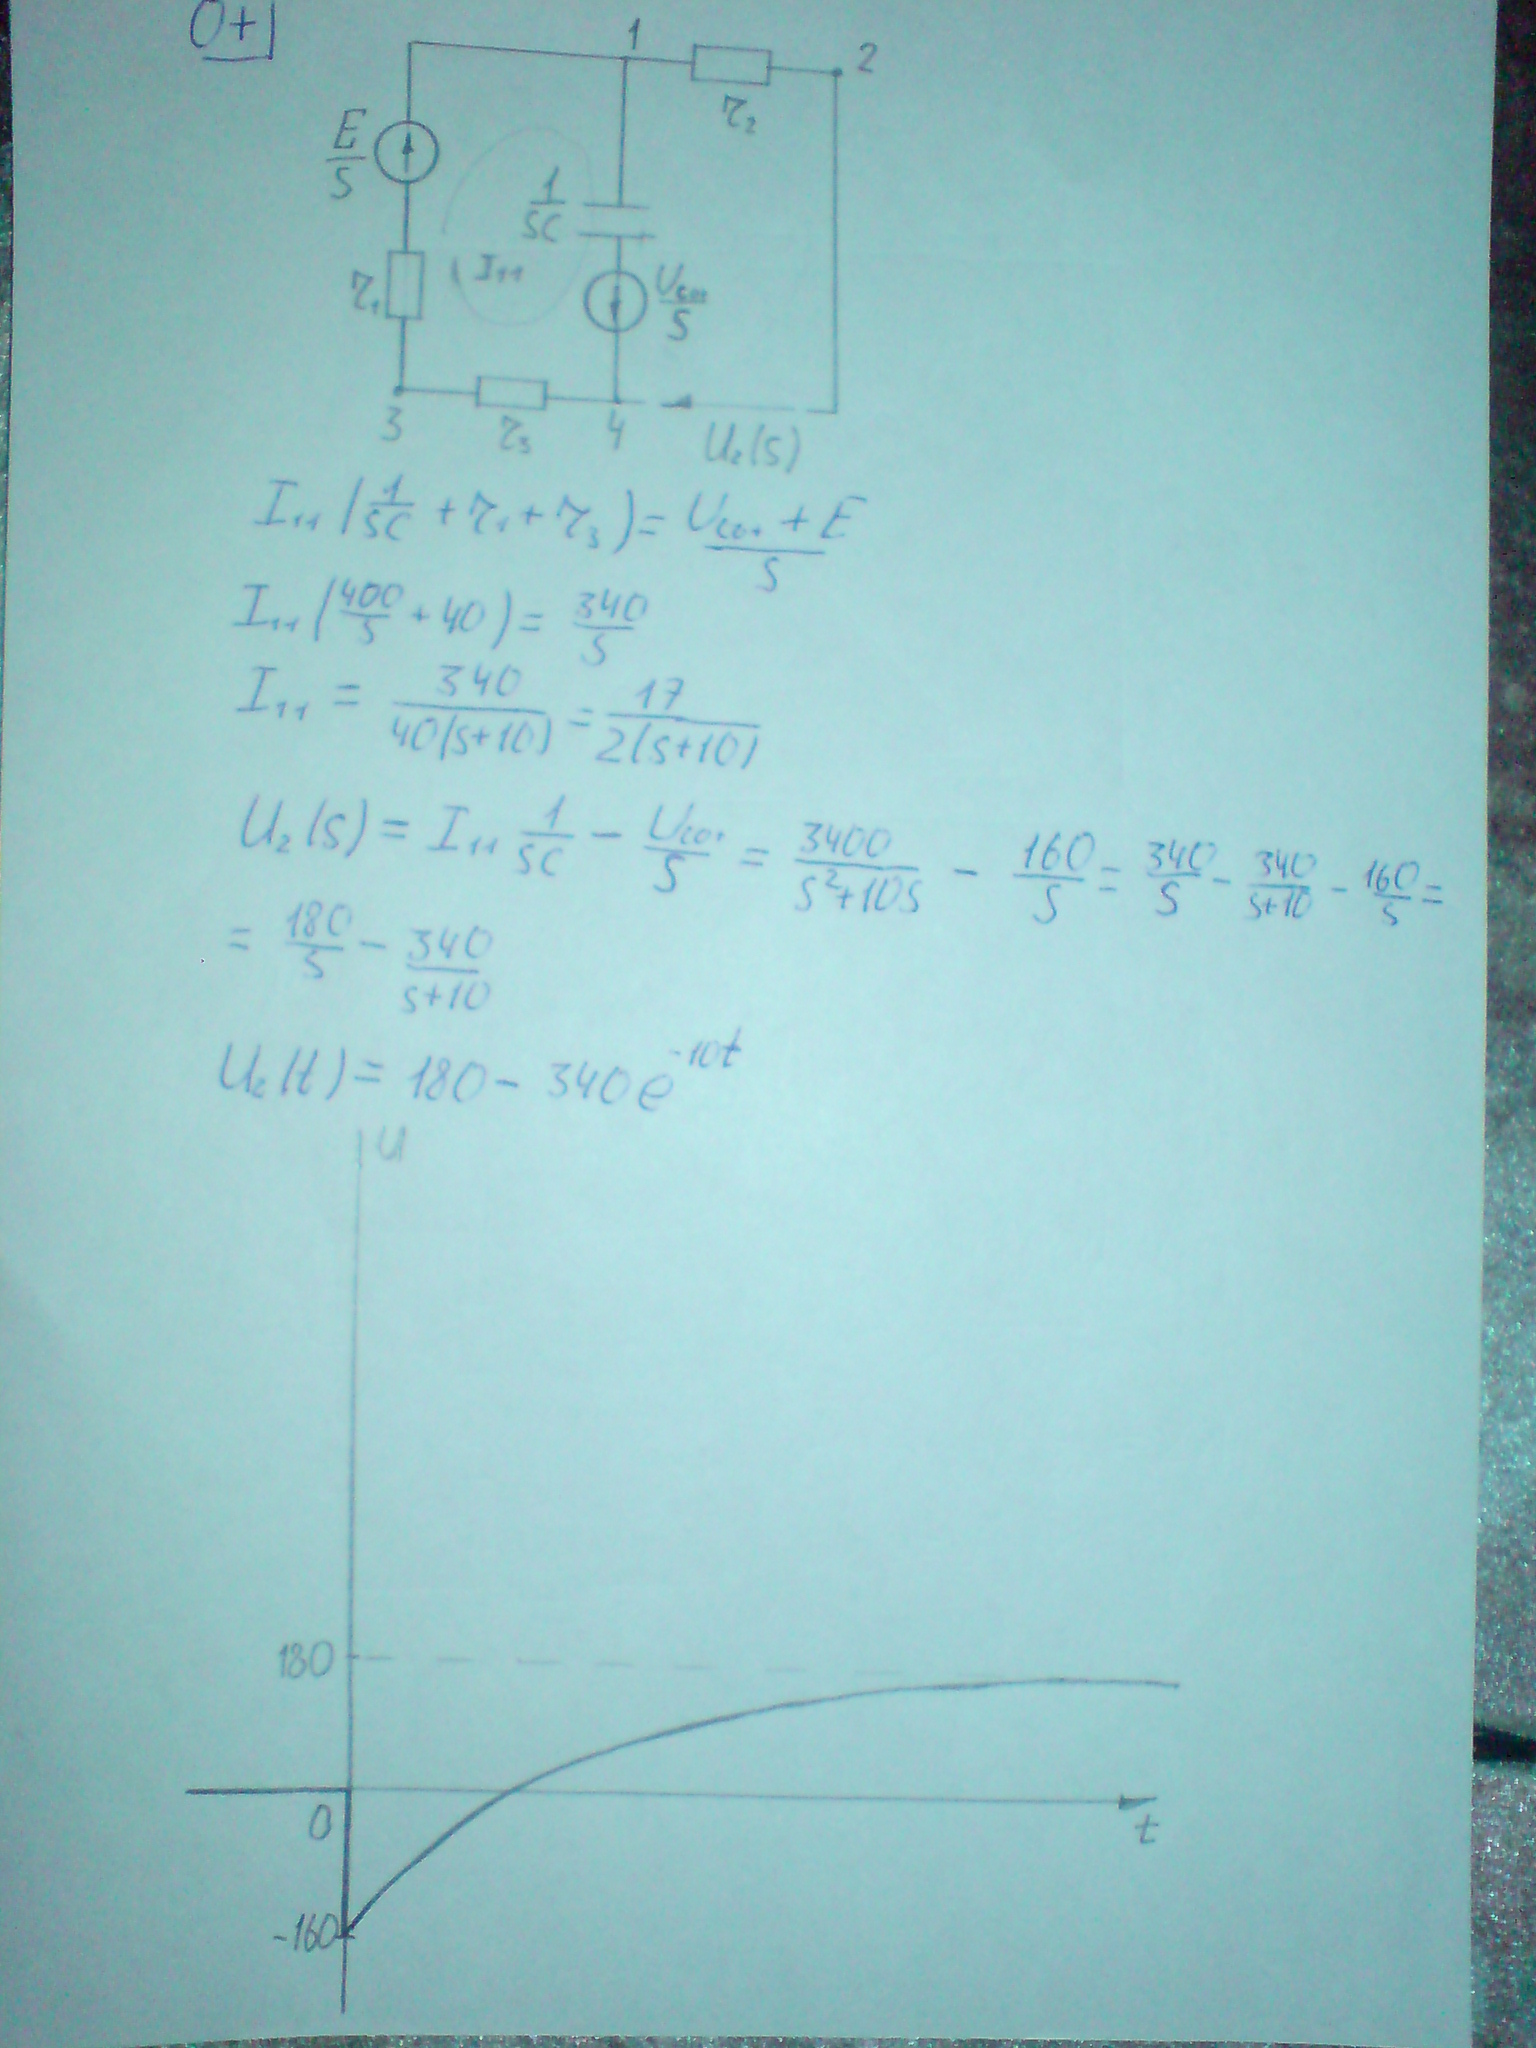 0+
1
2
r₂
E/S
1/SC
r₁
I₁₁
U_c0+/S
3
r₃
4
U₂(S)
I₁₁(1/SC + r₁ + r₃) = (U_c0+ + E)/S
I₁₁(400/S + 40) = 340/S
I₁₁ = 340/40(S+10) = 17/2(S+10)
U₂(S) = I₁₁ 1/SC − U_c0+/S = 3400/S²+10S − 160/S = 340/S − 340/S+10 − 160/S =
= 180/S − 340/S+10
U₂(t) = 180 − 340e^-10t
U
180
0
t
-160